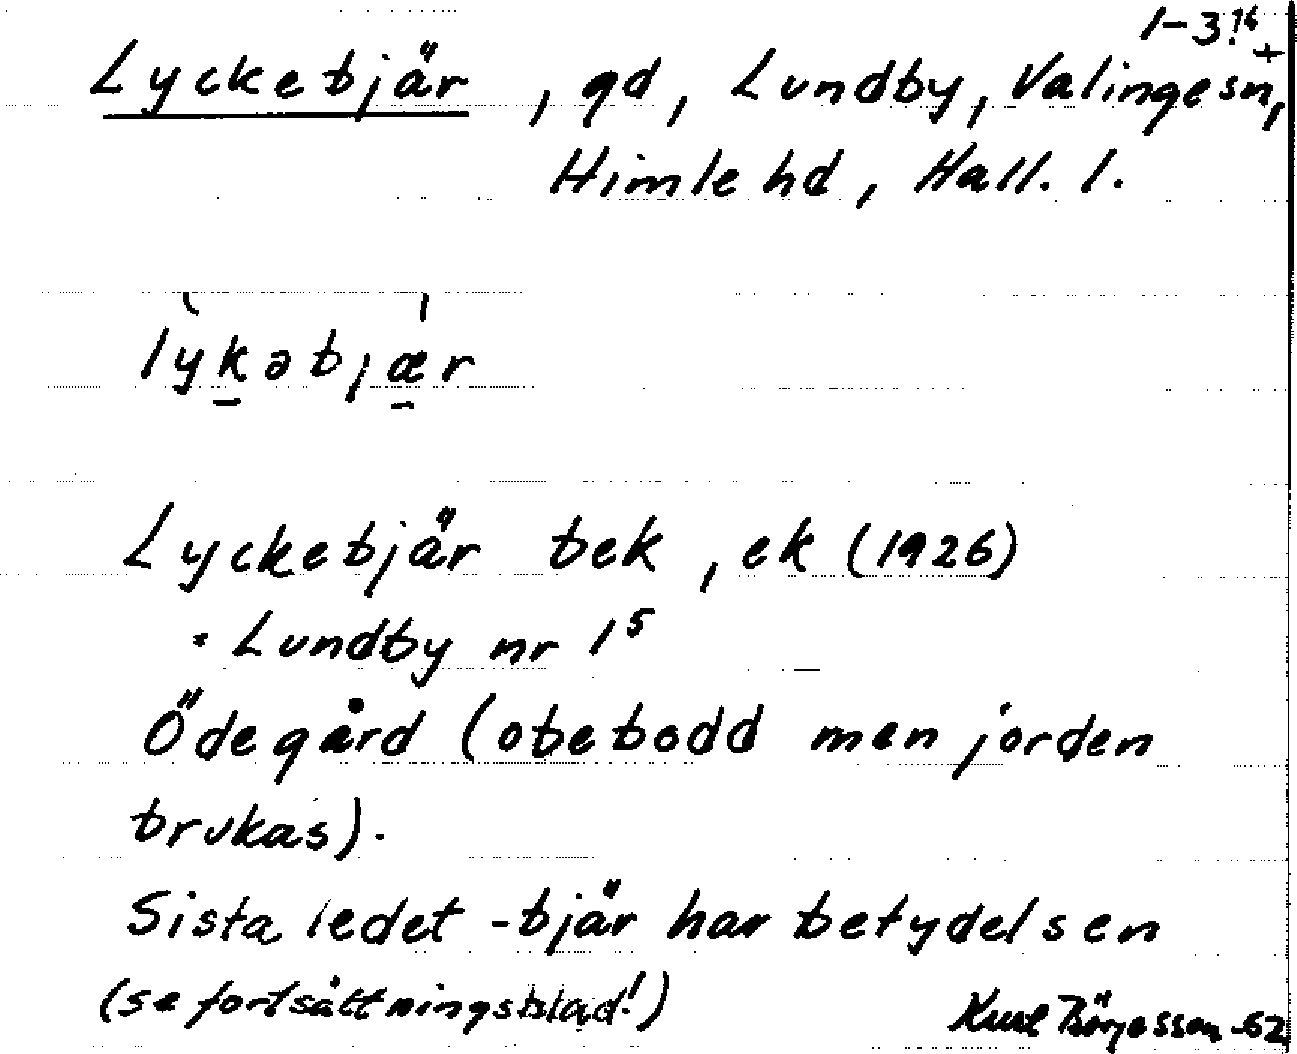 1-3!16 +
Lyckebjär, gd, Lundby, Valinge sn,
Himle hd, Hall. l.
lỳkəbjǽr
Lyckebjär bek, ek (1926)
· Lundby nr 1⁵
Ödegård (obebodd men jorden
brukas).
Sista ledet -bjär har betydelsen
(se fortsättningsblad!)
Kurt Börjesson -62